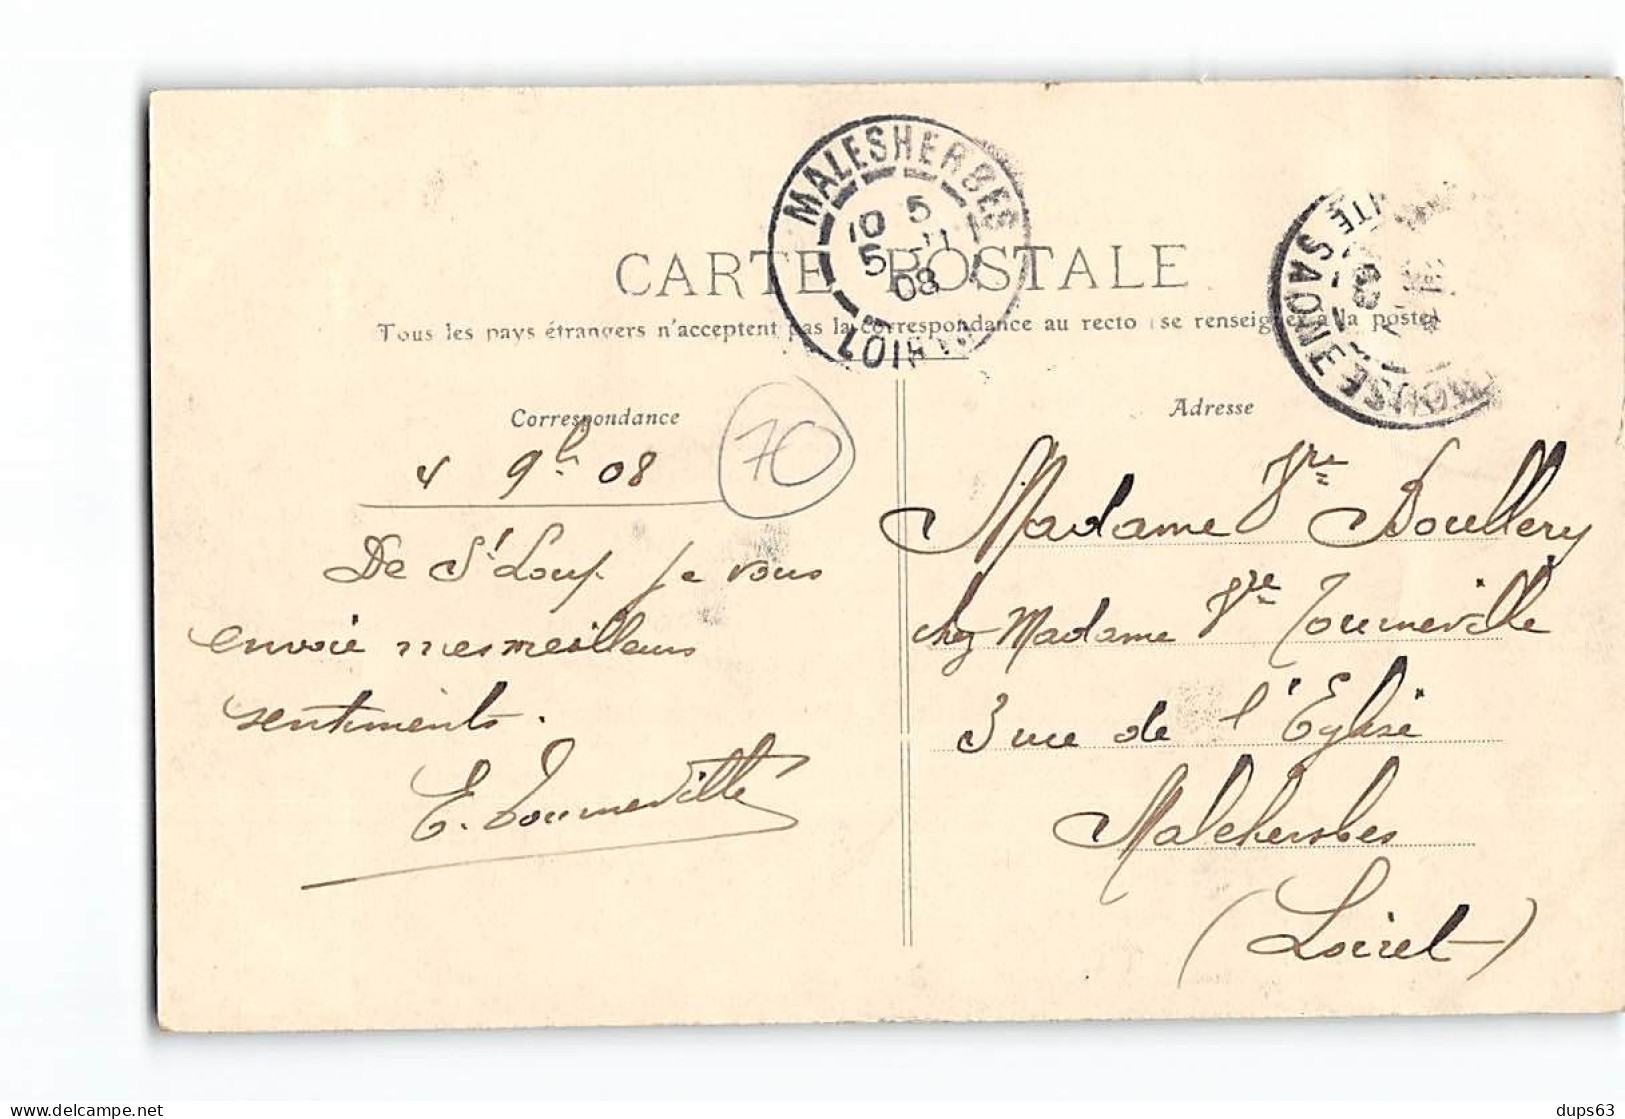 MALESHERBES
10 5
5 11
08
LOIRET
CARTE POSTALE
Tous les pays étrangers n'acceptent pas la correspondance au recto (se renseigner à la poste)
HTE SAONE
Correspondance
Adresse
70
4 9b 08
De St Loup je vous
envoie mes meilleurs
sentiments.
E. Tourneville
Madame Vve Boullery
chez Madame Vve Tourneville
3 rue de l'Eglise
Malehersbes
(Loiret)
delcampe.net
dups63